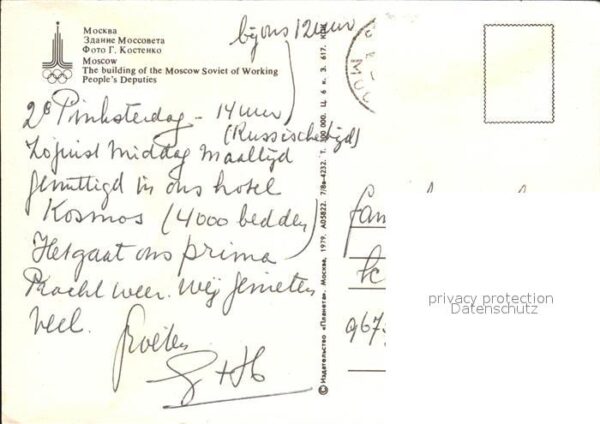 Москва
Здание Моссовета
Фото Г. Костенко
Moscow
The building of the Moscow Soviet of Working
People's Deputies
bij ons 12 uur
2e Pinksterdag - 14 uur
(Russische tijd)
Zojuist middag maaltijd
genuttigd in ons hotel
Kosmos (4000 bedden)
Het gaat ons prima
Pracht weer. Wij genieten
veel.
Groeten
G + H
© Издательство «Планета». Москва, 1979. А05822. 7/8в-4232. Т. 100 000. Ц 6 к. З. 617. КПК
fam
967
privacy protection
Datenschutz